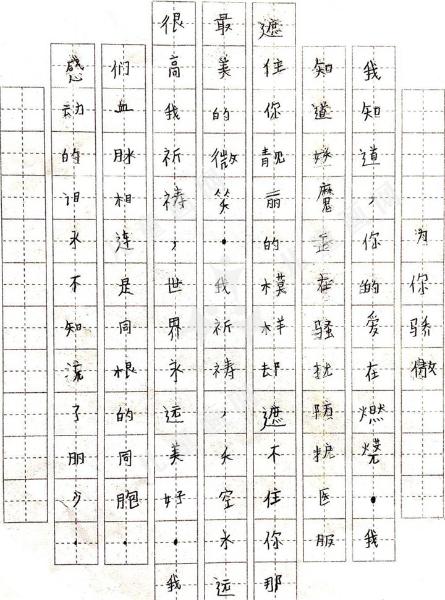 为你骄傲
我知道,你的爱在燃烧.我
知道妖魔在骚扰防医服
遮住你靓丽的模样却遮不住你那
最美的微笑.我祈祷,天空永远
很高我祈祷,世界永远美好.我
们血脉相连是同根的同胞.
感动的泪水不知流了少.